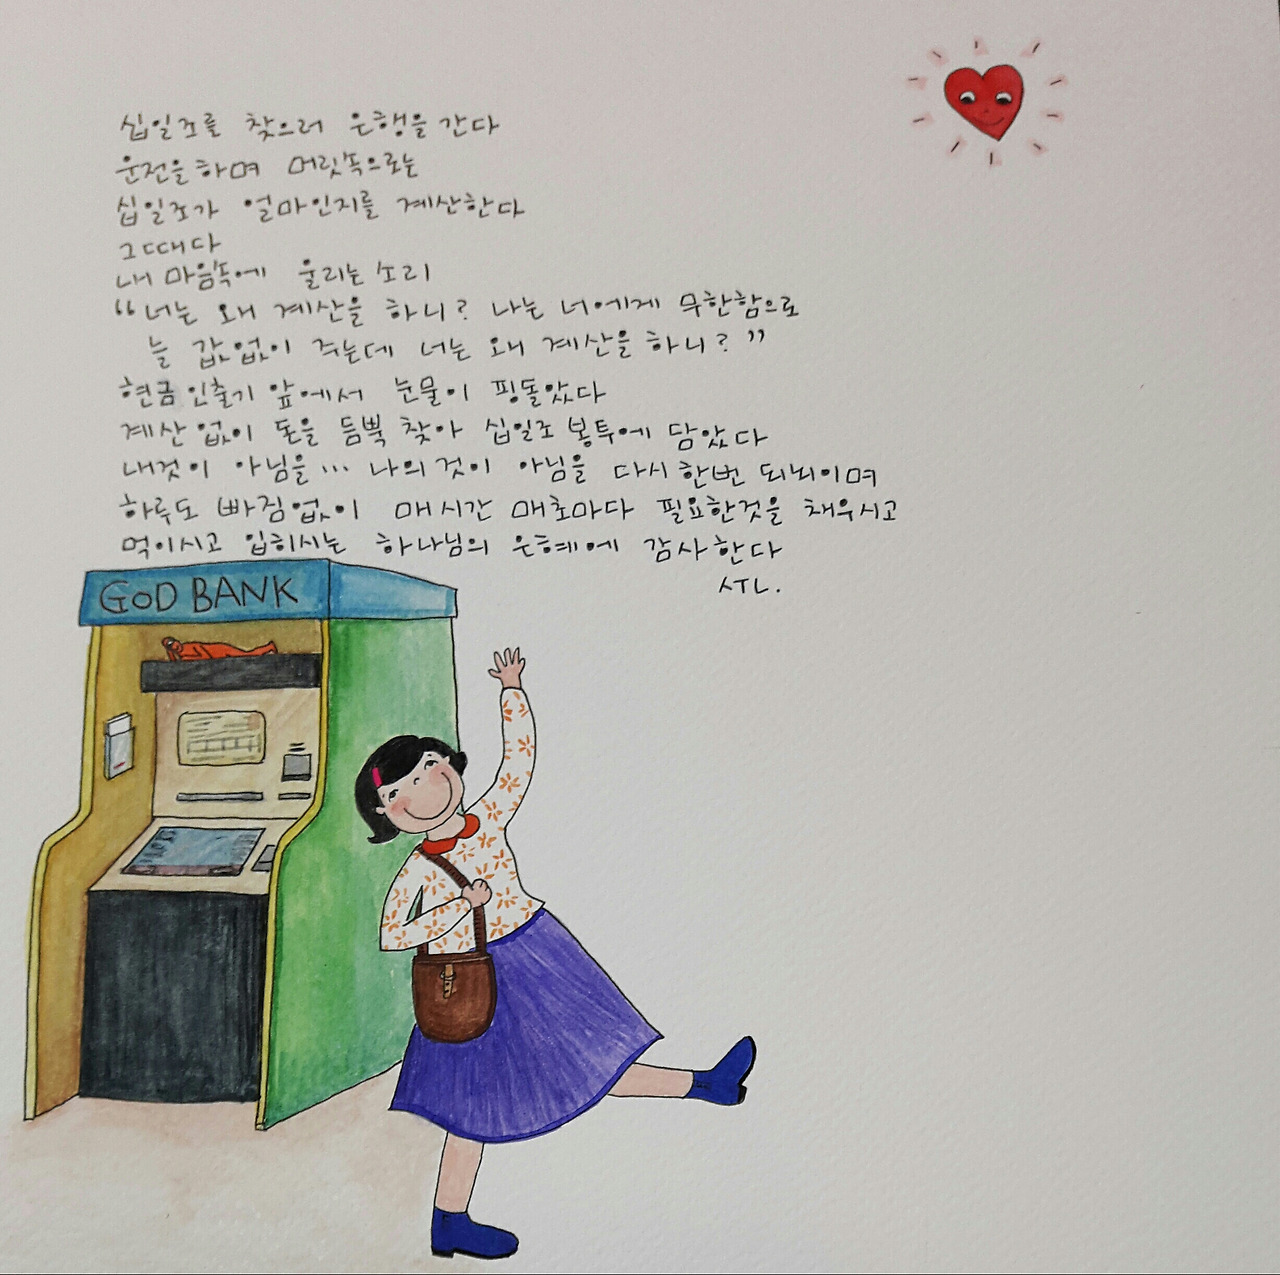 십일조를 찾으러 은행을 간다
운전을 하며 머릿속으로는
십일조가 얼마인지를 계산한다
그때다
내 마음속에 울리는 소리
"너는 왜 계산을 하니? 나는 너에게 무한함으로
늘 값없이 주는데 너는 왜 계산을 하니?"
현금인출기 앞에서 눈물이 핑돌았다
계산없이 돈을 듬뿍 찾아 십일조 봉투에 담았다
내것이 아님을... 나의것이 아님을 다시한번 되뇌이며
하루도 빠짐없이 매시간 매초마다 필요한것을 채우시고
먹이시고 입히시는 하나님의 은혜에 감사한다
STL.
GOD BANK